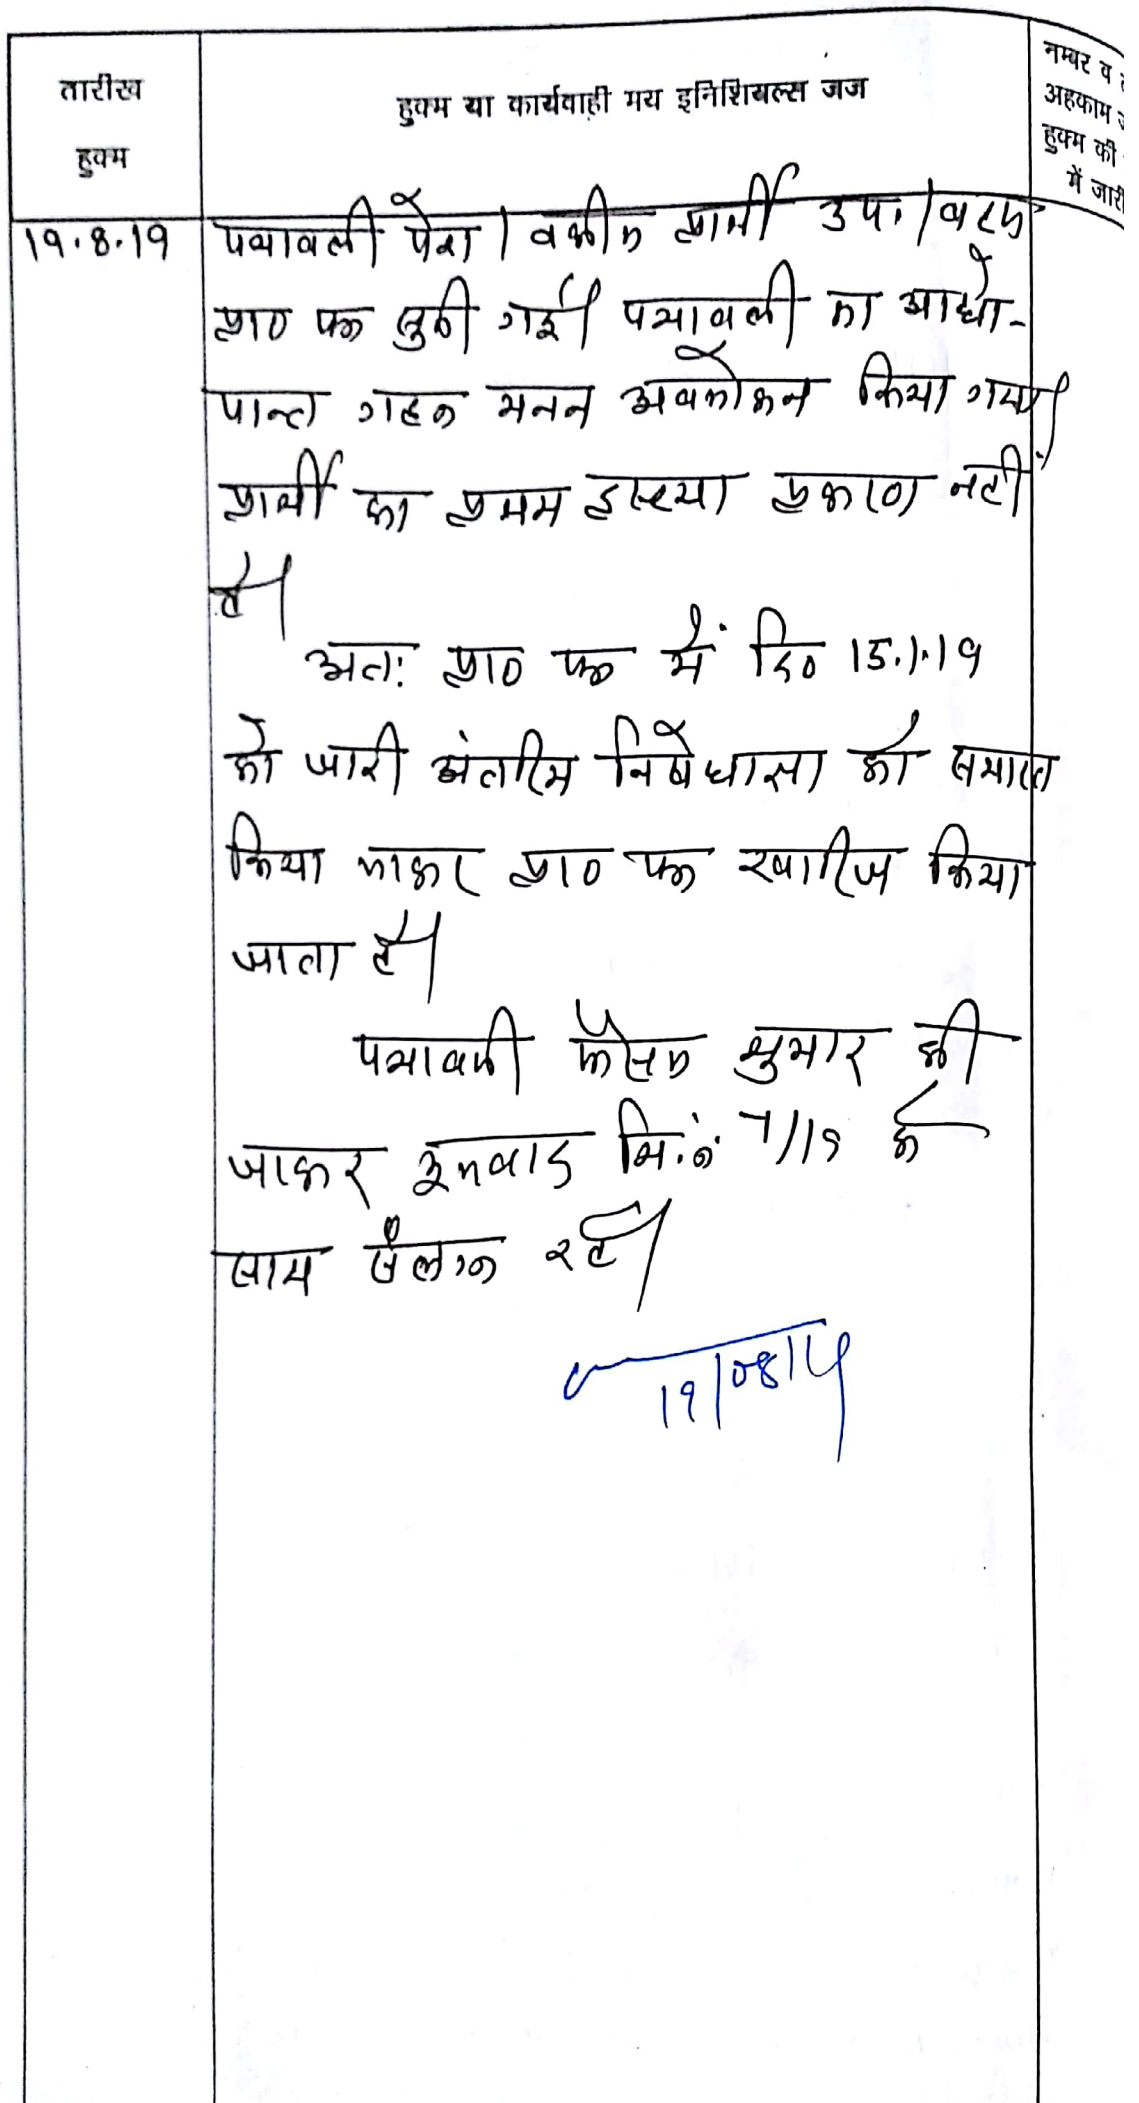 तारीख
हुक्म
हुक्म या कार्यवाही मय इनिशियल्स जज
नम्बर व
अहकाम
हुक्म की
में जारी
19.8.19
पत्रावली पेश। वकील प्रार्थी उप.। बहस
प्रा० पत्र सुनी गई। पत्रावली का आद्यो-
पान्त गहन मनन अवलोकन किया गया।
प्रार्थी का प्रथम दृष्टया प्रकरण नहीं
है।
अतः प्रा० पत्र में दि० 15.1.19
को जारी अंतरिम निषेधाज्ञा को समाप्त
किया जाकर प्रा० पत्र खारिज किया
जाता है।
पत्रावली फैसल शुमार की
जाकर मूलवाद सि.नं. 7/19 के
साथ संलग्न रहे।
19/08/19